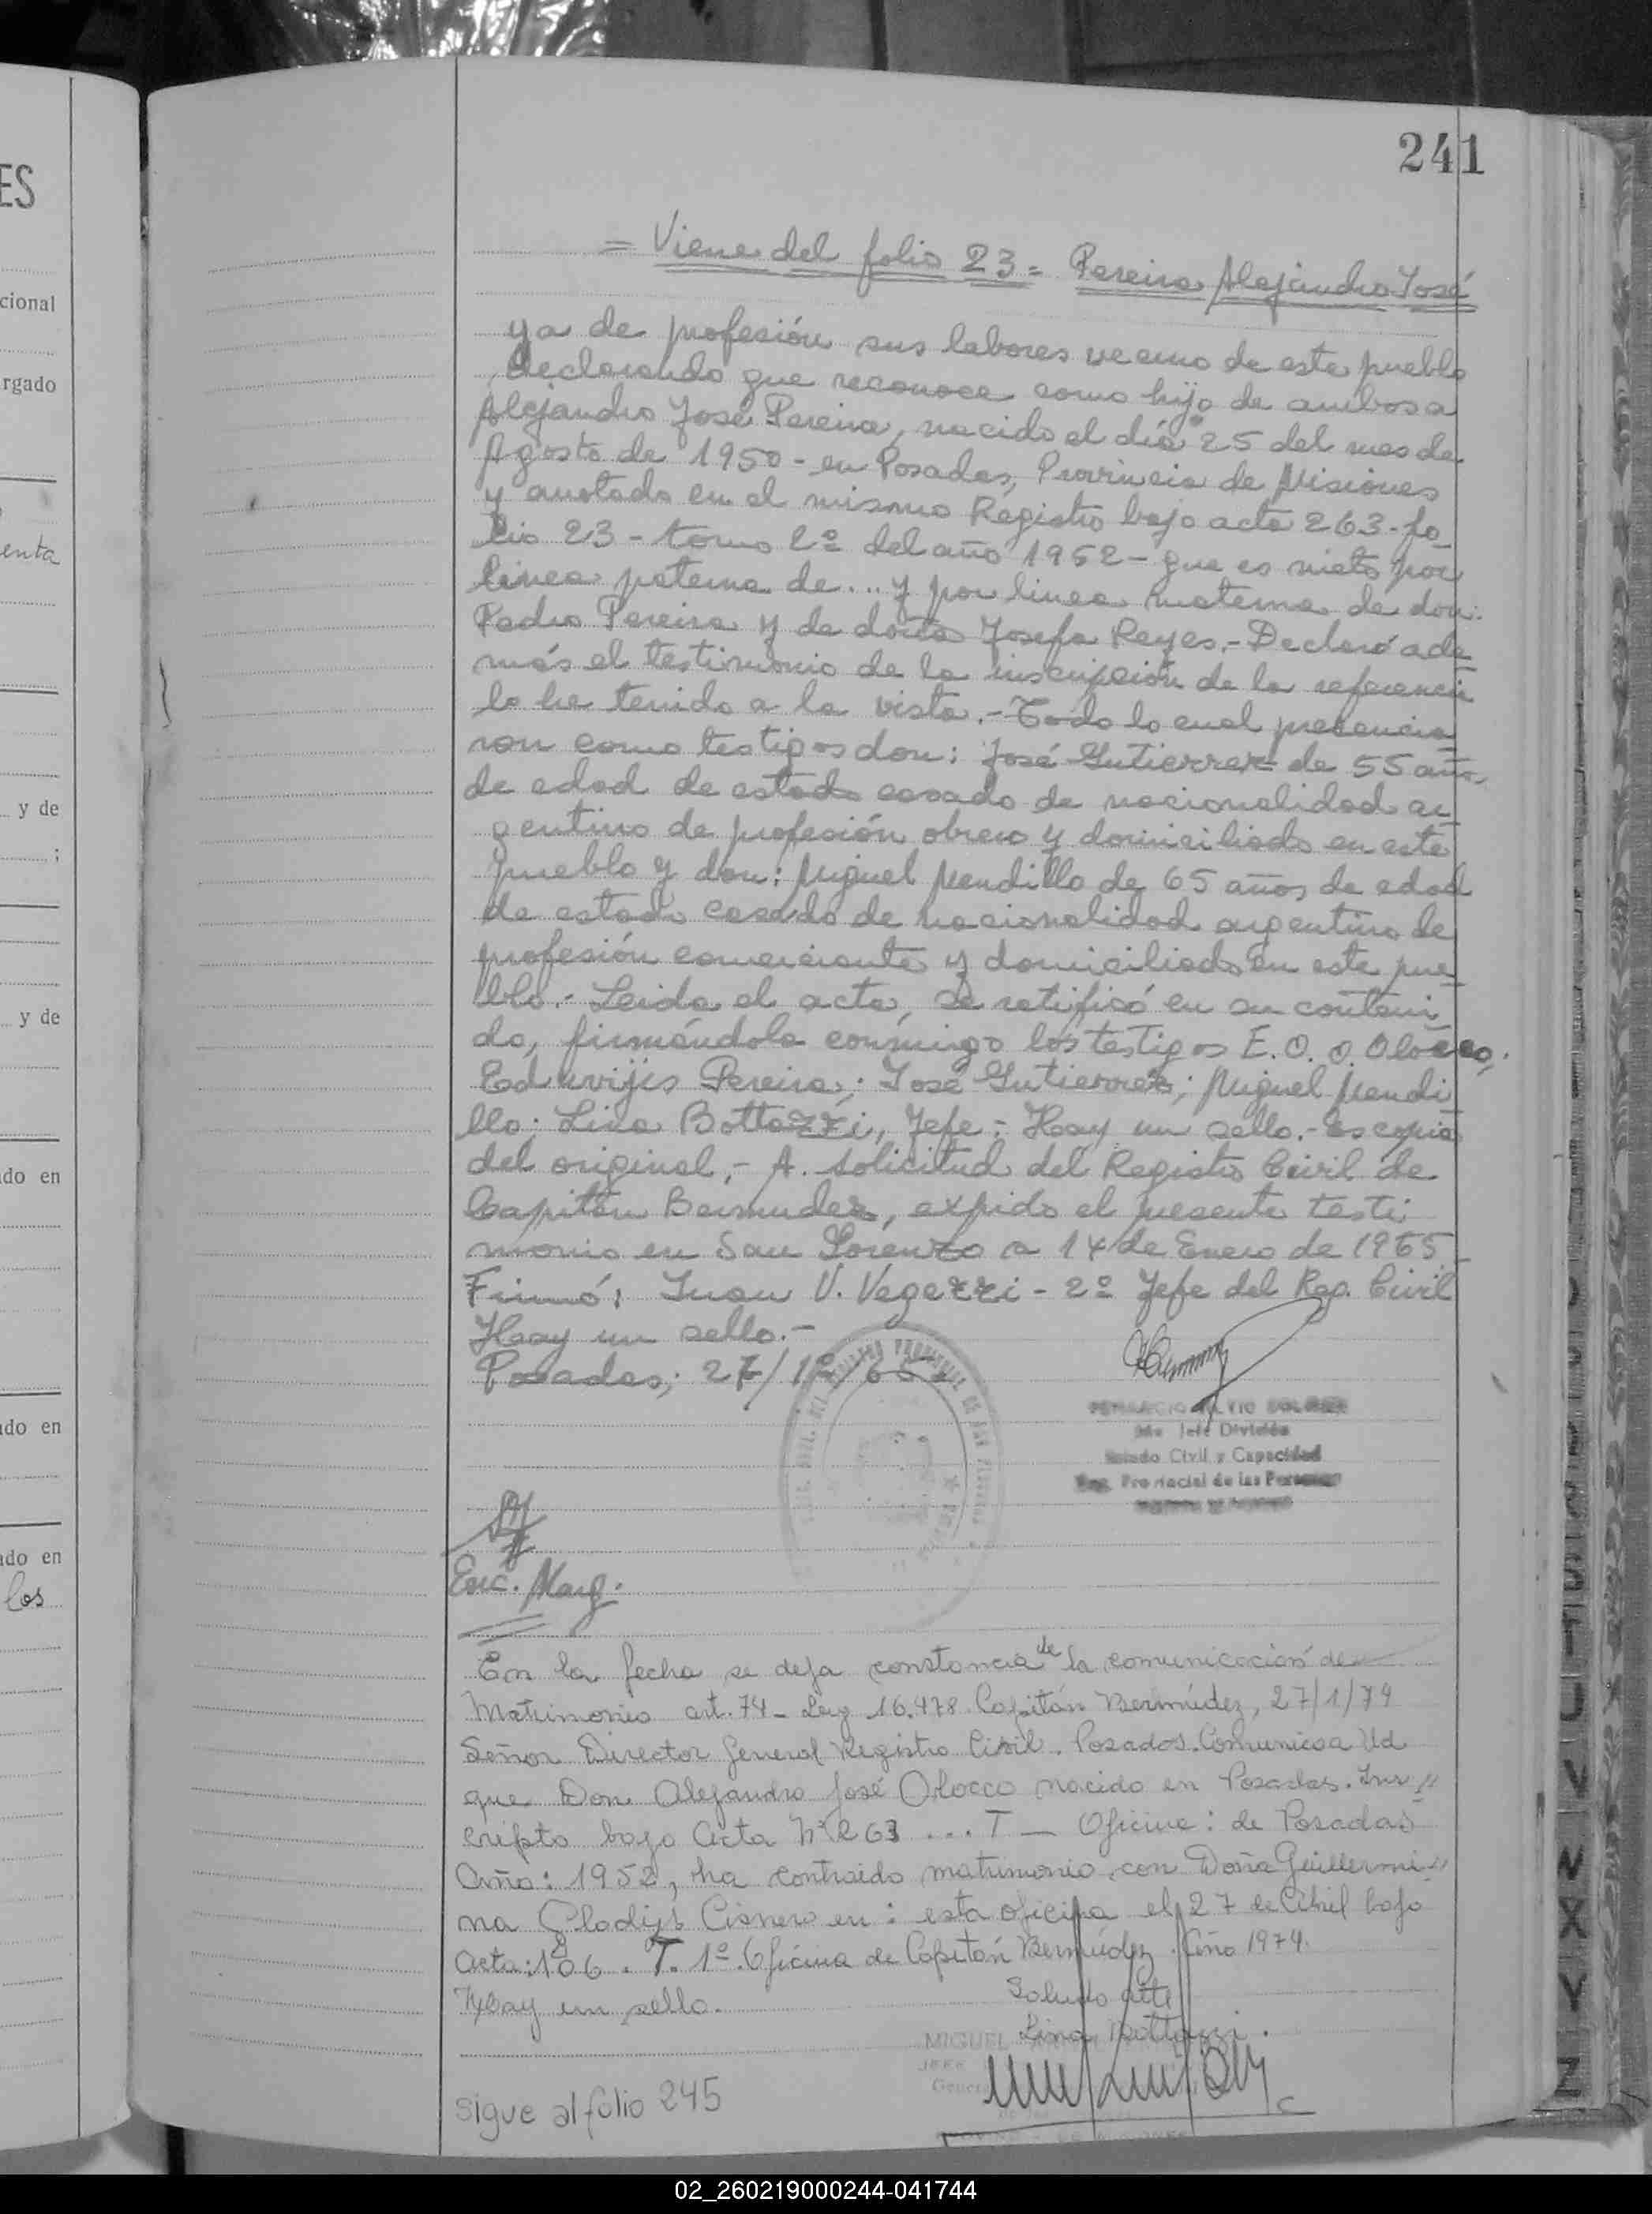 241
ES
cional
rgado
enta
y de
;
y de
do en
do en
do en
los
= Viene del folio 23 = Pereira Alejandro José
ya de profesión sus labores vecino de este pueblo
declarando que reconoce como hijo de ambos a
Alejandro José Pereira, nacido el día 25 del mes de
Agosto de 1950 - en Posadas, Provincia de Misiones
y anotado en el mismo Registro bajo acta 263 - fo
lio 23 - tomo 2º del año 1952 - que es nieto por
linea paterna de ... y por linea materna de don:
Pedro Pereira y de doña Josefa Reyes.- Declaró ade
más el testimonio de la inscripción de la referencia
lo he tenido a la vista.- Todo lo cual presencia
ron como testigos don: José Gutierrez de 55 años
de edad de estado casado de nacionalidad ar
gentino de profesión obrero y domiciliado en este
pueblo y don: Miguel Mendillo de 65 años de edad
de estado casado de nacionalidad argentino de
profesión comerciante y domiciliado en este pue
blo.- Leida el acta, se ratificó en su conteni
do, firmándola conmigo los testigos E. O. O. Olocco,
Eduvijis Pereira; José Gutierrez; Miguel Mendi
llo; Lina Bottazzi, Jefe; Hay un sello.- Es copia
del original,- A. solicitud del Registro Civil de
Capitán Bermudez, expido el presente testi
monio en San Lorenzo a 14 de Enero de 1965
Firmó: Juan V. Vegezzi - 2º Jefe del Reg. Civil
Hay un sello.-
Posadas; 27/12/65
Jefe División
Estado Civil y Capacidad
Reg. Provincial de las Personas
Enc. Marg.
En la fecha se deja constancia de la comunicación de
Matrimonio art. 74 - Ley 16.478. Capitán Bermúdez, 27/1/74
Señor Director General Registro Civil. Posadas. Comunico a Ud
que Don Alejandro José Olocco nacido en Posadas. Ins //
cripto bajo Acta Nº 263 ... T — Oficina: de Posadas
Año: 1952, ha contraido matrimonio con Doña Guillermi //
na Gladys Cisnero en: esta oficina el 27 de Abril bajo
acta: 106. T. 1º. Oficina de Capitán Bermúdez. Año 1974.
Hay un sello.
Saludo atte
Lina Bottazzi.
MIGUEL
JEFE
Sigue al folio 245
02_260219000244-041744